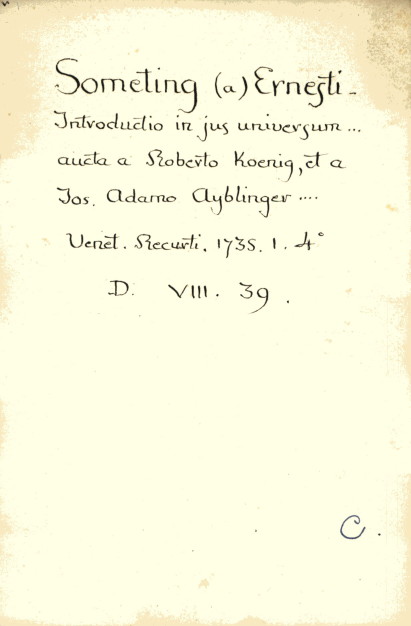 Someting (a) Ernesti -
Introductio in jus universum ...
aucta a Roberto Koenig, et a
Jos. Adamo Ayblinger ....
Venet. Recurti. 1735. 1. 4°
D. VIII. 39.
C.